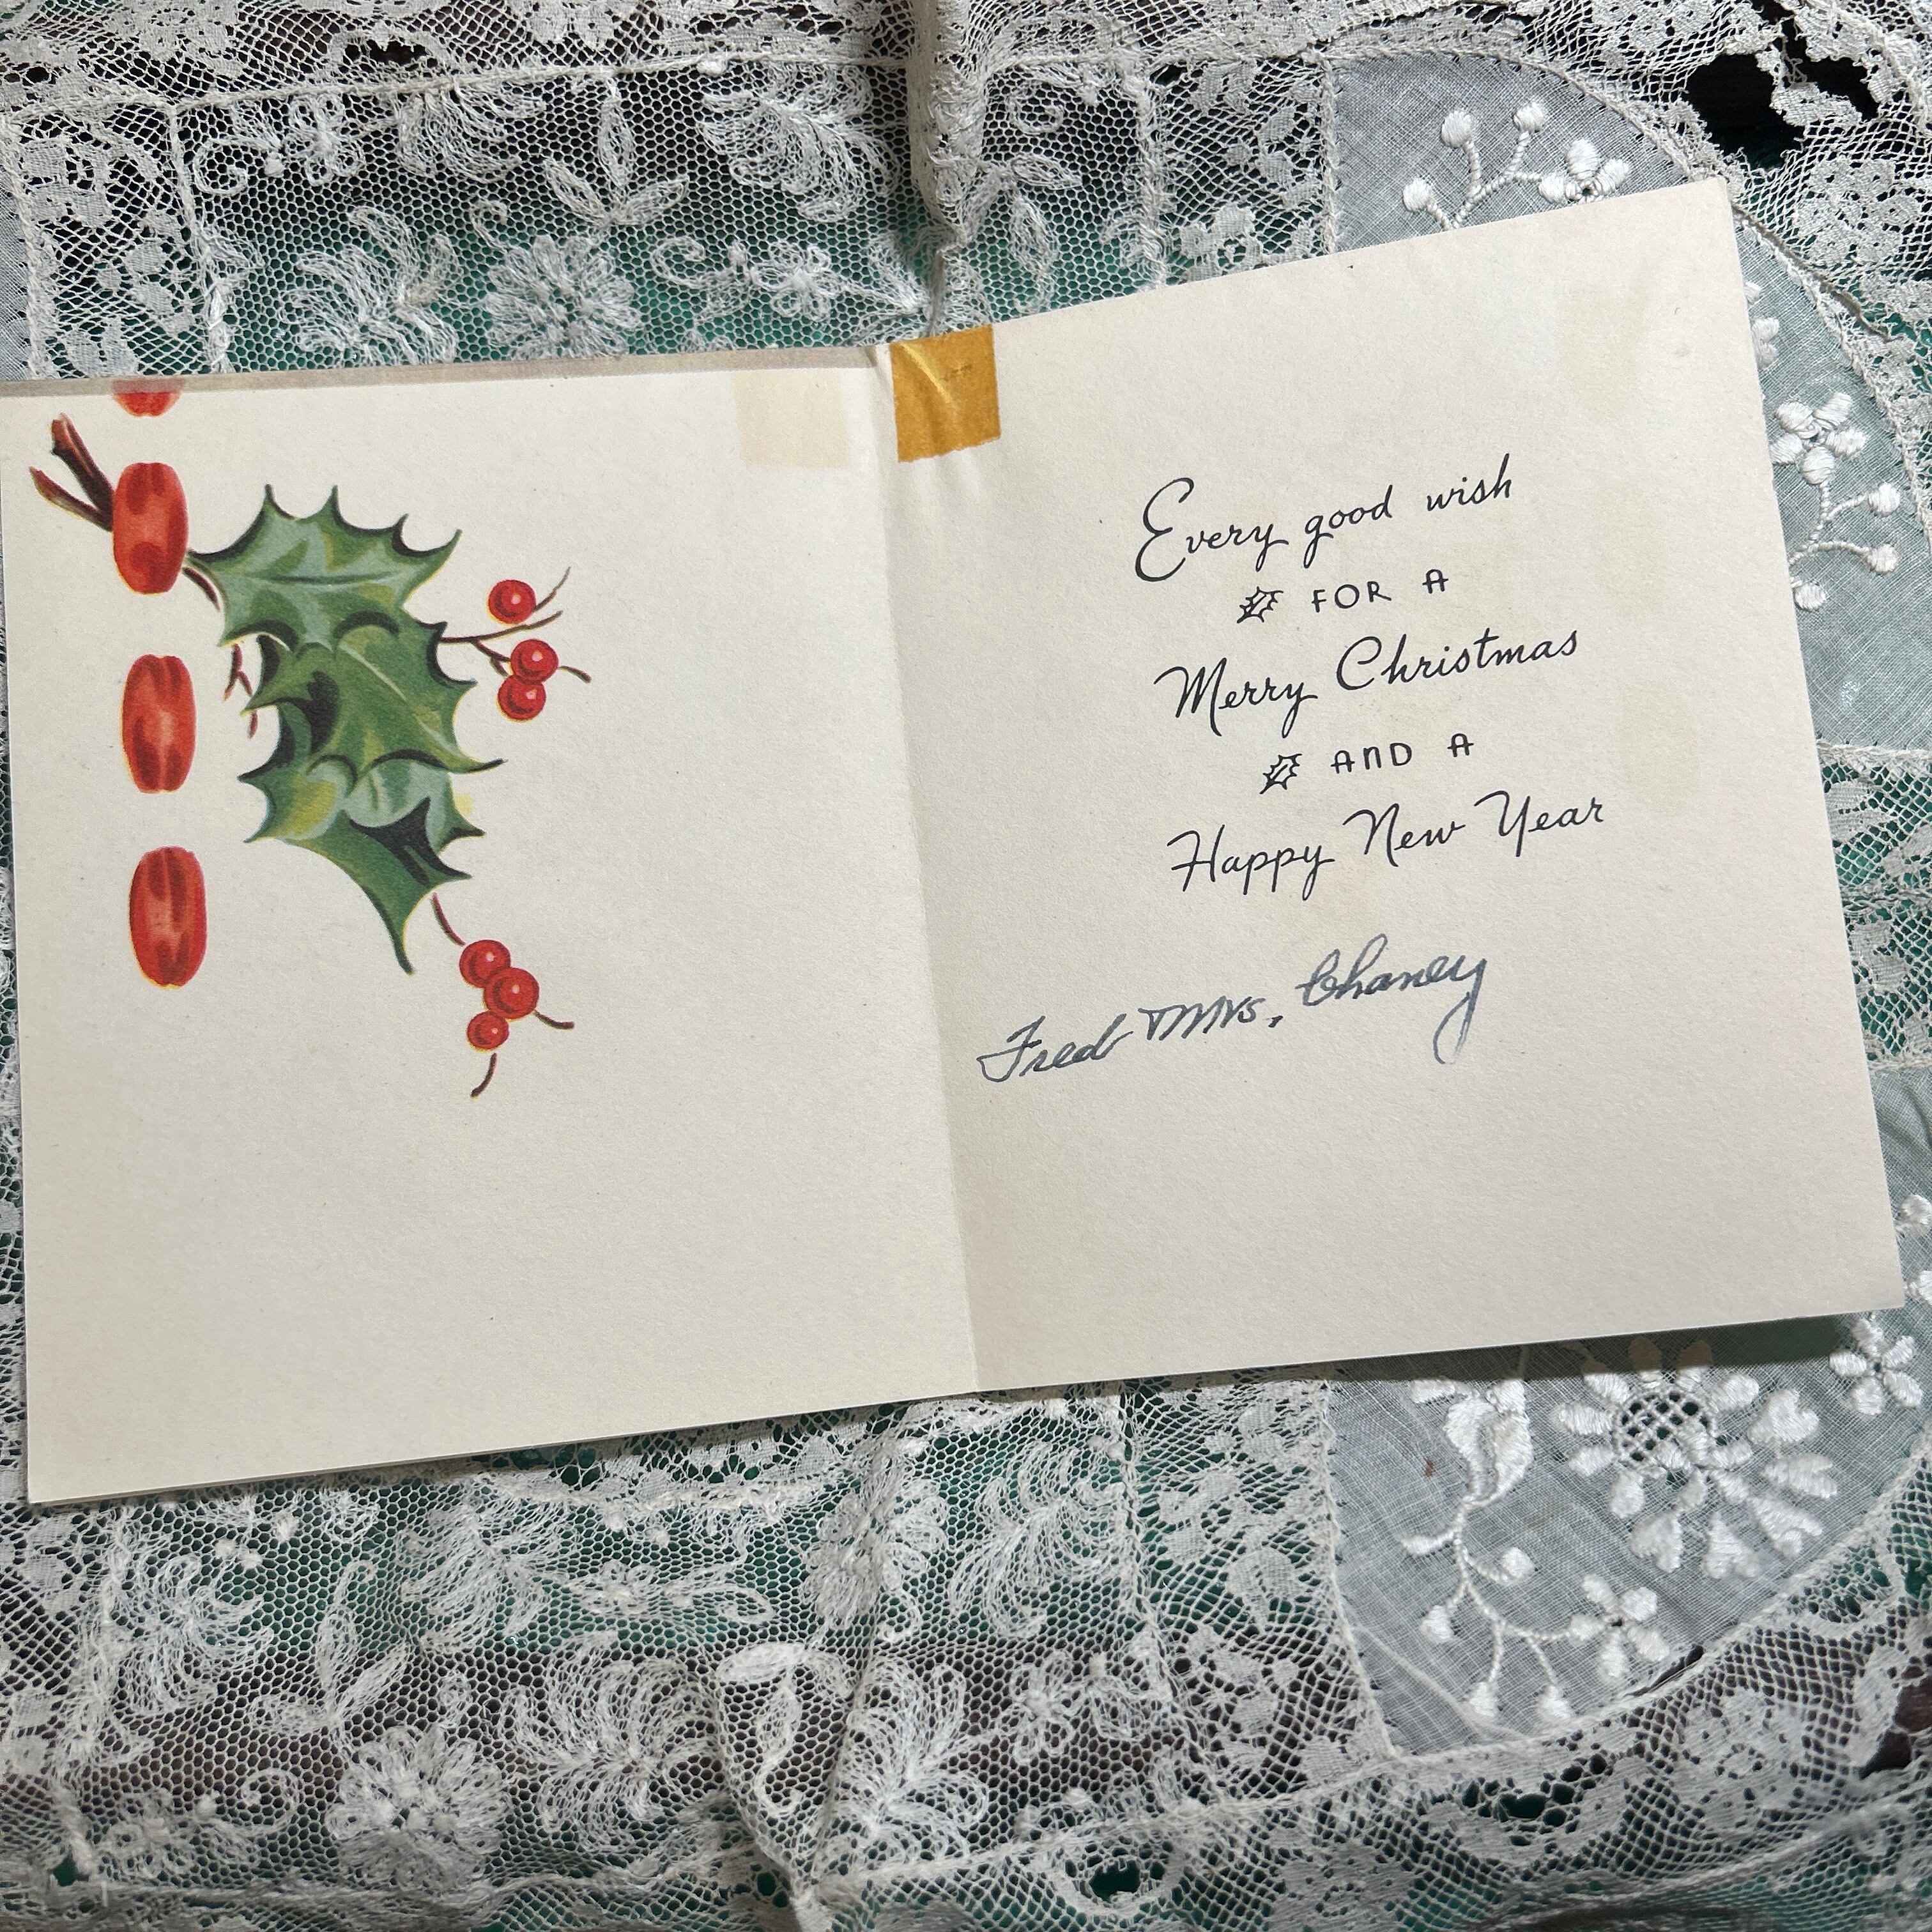 Every good wish
FOR A
Merry Christmas
AND A
Happy New Year
Fred Mrs. Chaney